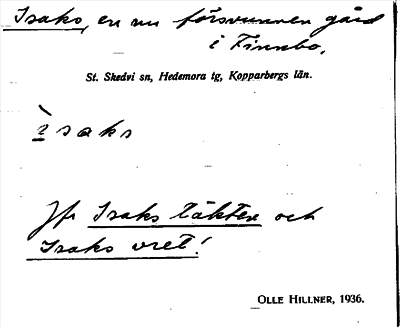 Isaks, en nu försvunnen gård
i Finnbo.
St. Skedvi sn, Hedemora tg, Kopparbergs län.
ìsaks
Jfr Isaks täkten och
Isaks vret!
OLLE HILLNER, 1936.